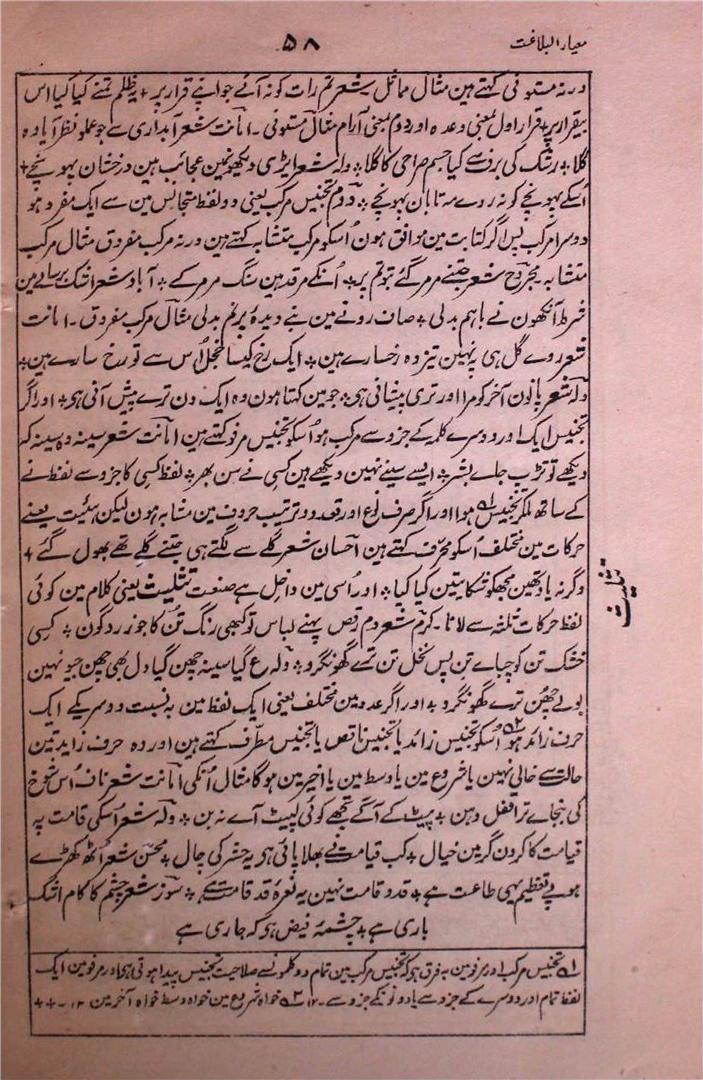 معیار البلاغت
۵۸
ورنہ مستوفی کہتے ہین مثال مماثل شعر تم رات کو نہ آئے جو اپنے قرار پر + یہ ظلم تمنے کیا کیا اس
بیقرار پر + قرار اول بمعنی وعدہ اور دوم بمعنی آرام مثال مستوفی ۔ امانت شعر آبداری سے جو مملو نظر آیا وہ
گلا + رشک کی برف سے کیا جسم صراحی کا گلا + ولہ شعر ایڑی دیکھو نہین عجائب ہین درخشان پہونچے +
اسکے پہونچے کو نہ روے مہ تابان پہونچے + دوم تجنیس مرکب یعنی دو لفظ متجانس مین سے ایک مفرد ہو
دوسرا مرکب پس اگر کتابت مین موافق ہون اسکو مرکب متشابہ کہتے ہین ورنہ مرکب مفروق مثال مرکب
متشابہ ۔ مجروح شعر جتنے مر مر گئے بتو تم پر + اُنکے مرقد مین سنگ مرمر کے + آباد شعر اشک برسانے مین
شرط آنکھون نے باہم بدلی + صاف رونے مین بنے دیدۂ پرنم بدلی مثال مرکب مفروق ۔ امانت
شعر روے گل ہی پہ نہین تیز وہ رخسارے ہین + ایک رخ کیسا خجل اُس سے تو رخ سارے ہین +
ولہ شعر پانون آخر کو مرا اور تری پیشانی ہی + جو مین کہتا ہون وہ ایک دن ترے پیش آنی ہی + اور اگر
تجنیس ایک اور دوسرے کلمہ کے جزو سے مرکب ہو اُسکو تجنیس مرفو کہتے ہین امانت شعر سینہ وہ سینہ کہ
دیکھے تو تڑپ جاے بشر + ایسے سینے نہین دیکھے ہین کسی نے سن بھر + لفظ کسی کا جزو سے لفظ نے
کے ساتھ ملکر تجنیس ہوا اور اگر صرف نوع اور تعدد و ترتیب حروف مین مشابہ ہون لیکن ہیئت یعنے
حرکات مین مختلف اُسکو محرف کہتے ہین احسان شعر گلے سے لگتے ہی جتنے گلے تھے بھول گئے +
وگرنہ یاد تھین مجھکو شکایتین کیا کیا + اور اُسی مین داخل ہے صنعت تثلیث یعنی کلام مین کوئی
لفظ حرکات ثلثہ سے لانا ۔ کرم شعر دم رقص پہنے لباس تو کبھی رنگ تن کا جو زرد گون + کسی
خشک تن کو چباے تن پس نخل تن ترے گھونگرو + ولہ ع گیا سینہ چھن گیا دل بھی چھن جو نہین
بولے چھن ترے گھونگرو + اور اگر عدد مین مختلف یعنی ایک لفظ مین بہ نسبت دوسریکے ایک
حرف زائد ہو اُسکو تجنیس زائد یا تجنیس ناقص یا تجنیس مطرف کہتے ہین اور وہ حرف زاید تین
حالت سے خالی نہین یا شروع مین یا وسط مین یا اخیر مین ہوگا مثال اُنکی امانت شعر ناف اُس شوخ
کی بنجاے ترا قفل دہن + پیٹ کے آگے تجھے کوئی لپیٹ آے نہ بن + ولہ شعر اُسکی قامت پہ
قیامت کا کرون گر مین خیال + کب قیامت نے بھلا پائی ہی یہ حشر کی چال + محسن شعر اُٹھ کھڑے
ہوے تعظیم یہی طاعت ہے + قد و قامت نہین یہ نعرۂ قد قامت ہے + سوز شعر چشم کا کام اشک
باری ہے + چشمۂ فیض ہی کہ جاری ہے
تثلیث
۱ تجنیس مرکب اور مرفو مین یہ فرق ہی کہ تجنیس مرکب مین تمام دو کلمونسے صلاحیت تجنیس پیدا ہوتی ہی اور مرفو مین ایک
لفظ تمام اور دوسرے کے جزو سے یا دونونکے جزو سے ۱۲ ۲ خواہ شروع مین خواہ وسط خواہ آخر مین ۱۲ + +